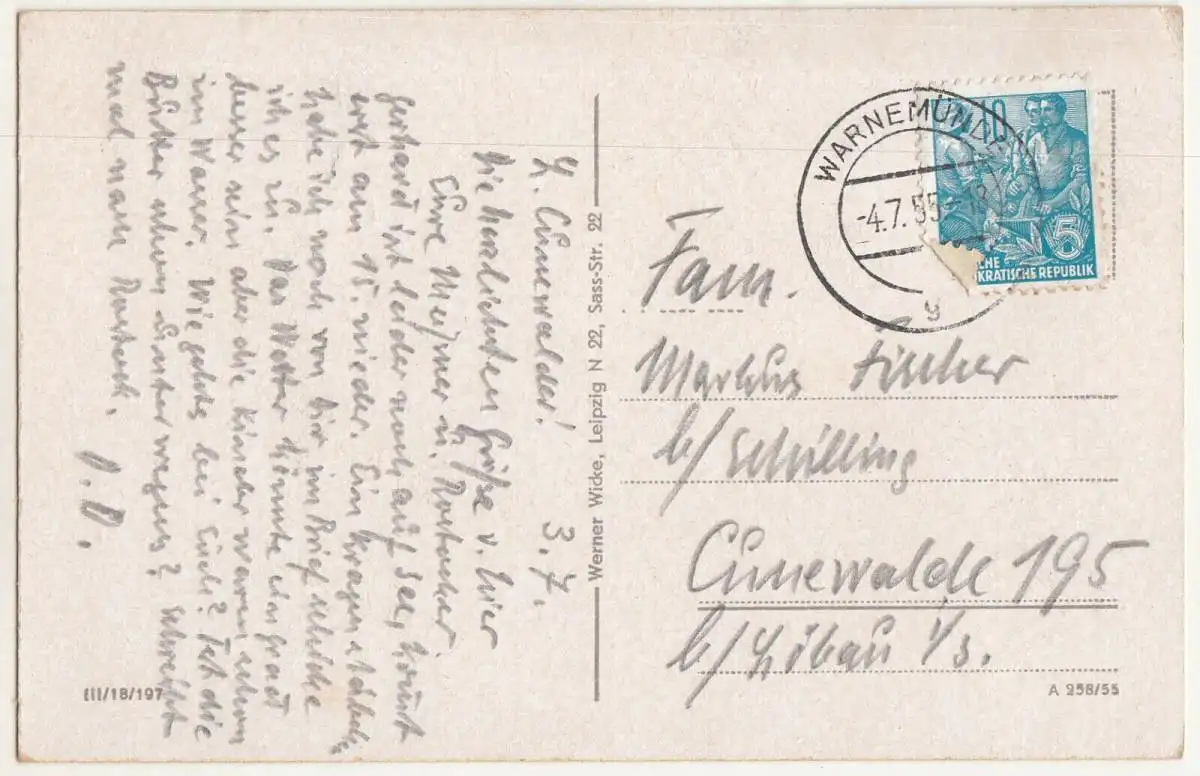 L. Cunewalder! 3.7.
Die herzlichsten Grüße v. hier
Eure Meißner u. Rostocker
Gerhard ist leider noch auf See, kommt
erst am 15. wieder. Ein
habe ich noch von Dir im Brief schicke
ich es zu. Das Wetter könnte ein grad
besser sein aber die Kinder waren schon
im Wasser. Wie gehts bei Euch? Ist die
Butter schon unterwegens? Schreibt
mal nach Rostock.
D. O.
Werner Wicke, Leipzig N 22, Sass-Str. 22
III/18/197
WARNEMÜNDE
-4.7.55-18
g
10
5
CHE
KRATISCHE REPUBLIK
Fam.
Markus Fischer
b/ Schilling
Cunewalde 195
b/ Löbau i/s.
A 258/55